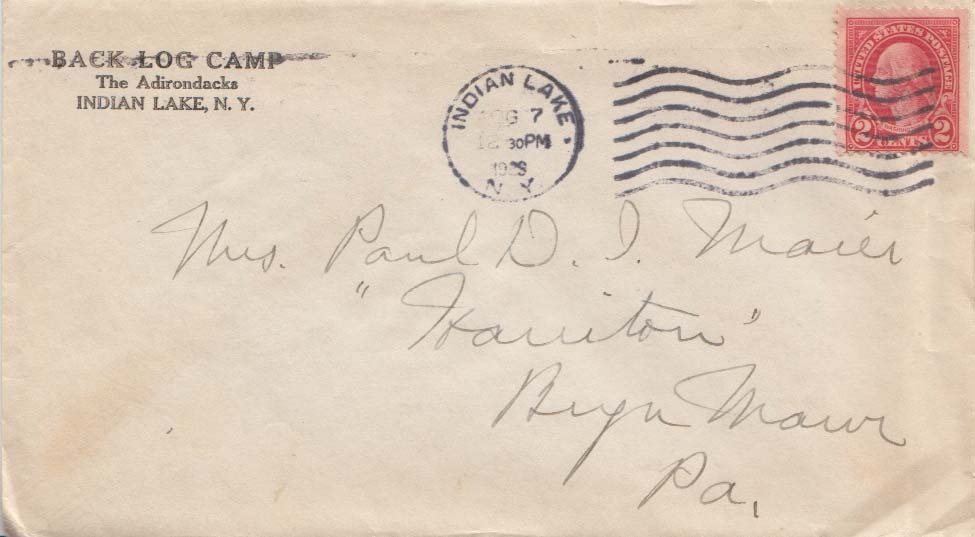 BACK LOG CAMP
The Adirondacks
INDIAN LAKE, N. Y.
INDIAN LAKE
AUG 7
12 30PM
N. Y.
UNITED STATES POSTAGE
2 CENTS 2
Mrs. Paul D. I. Maier
"Harriton"
Bryn Mawr
Pa.